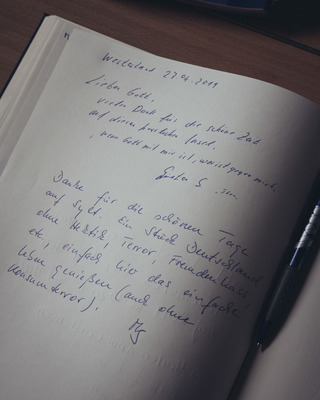 Westerland 27.04.2019
Lieber Gott,
vielen Dank für die schöne Zeit
auf dieser herrlichen Insel.
"wenn Gott mit mir ist, wer ist gegen mich,
S. sen
Danke für die schönen Tage
auf Sylt. Ein Stück Deutschland
ohne Hektik, Terror, Fremdenhass
etc, einfach hier das einfache
Leben genießen (auch ohne
Konsumterror).